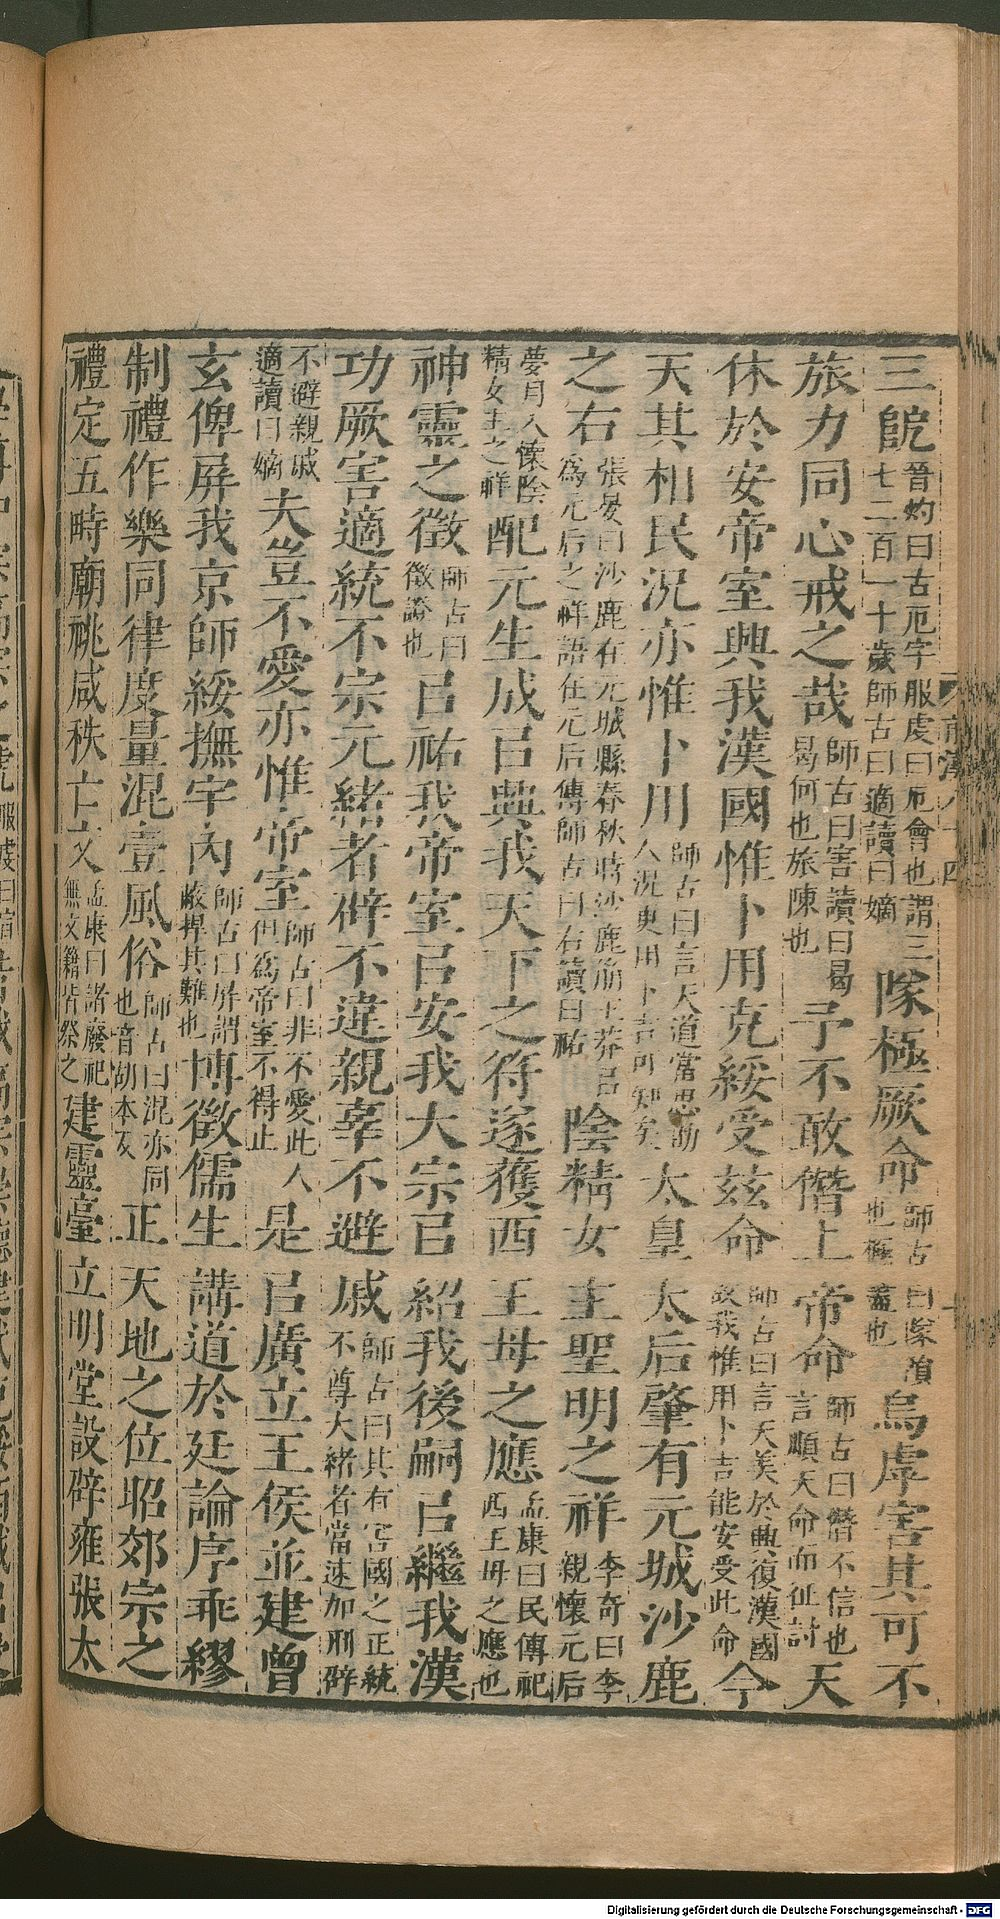 三䦙晉灼曰古厄字服虔曰厄會也謂三七二百一十歲師古曰適讀曰嫡隊極厥命師古曰隊湏也極盡也烏虖害其可不
旅力同心戒之哉師古曰害讀曰曷曷何也旅陳也予不敢僭上帝命師古曰僭不信也言順天命而征討天
休於安帝室興我漢國惟卜用克綏受兹命師古曰言天美於興復漢國故我惟用卜吉能安受此命今
天其相民況亦惟卜用師古曰言天道當思助人況更用卜吉可知矣太皇太后肇有元城沙鹿
之右張晏曰沙鹿在元城縣春秋時沙鹿崩王莽㠯爲元后之祥語在元后傳師古曰右讀曰祐陰精女主聖明之祥李奇曰李親懷元后
夢月入懷陰精女主之祥配元生成㠯興我天下之符遂獲西王母之應孟康曰民傳祀西王母之應也
神靈之徵師古曰徵證也㠯祐我帝室㠯安我大宗㠯紹我後嗣㠯繼我漢
功厥害適統不宗元緒者辟不違親辜不避戚師古曰其有害國之正統不尊大緒者當速加刑辟
不避親戚適讀曰嫡夫豈不愛亦惟帝室師古曰非不愛此人但爲帝室不得止是㠯廣立王侯並建曾
玄俾屏我京師綏撫宇內師古曰屏謂蔽捍其難也博徵儒生講道於廷論序乖繆
制禮作樂同律度量混壹風俗師古曰混亦同也音胡本反正天地之位昭郊宗之
禮定五畤廟祧咸秩亡文孟康曰諸廢祀無文籍皆祭之建靈臺立明堂設辟雍張太
Digitalisierung gefördert durch die Deutsche Forschungsgemeinschaft - DFG